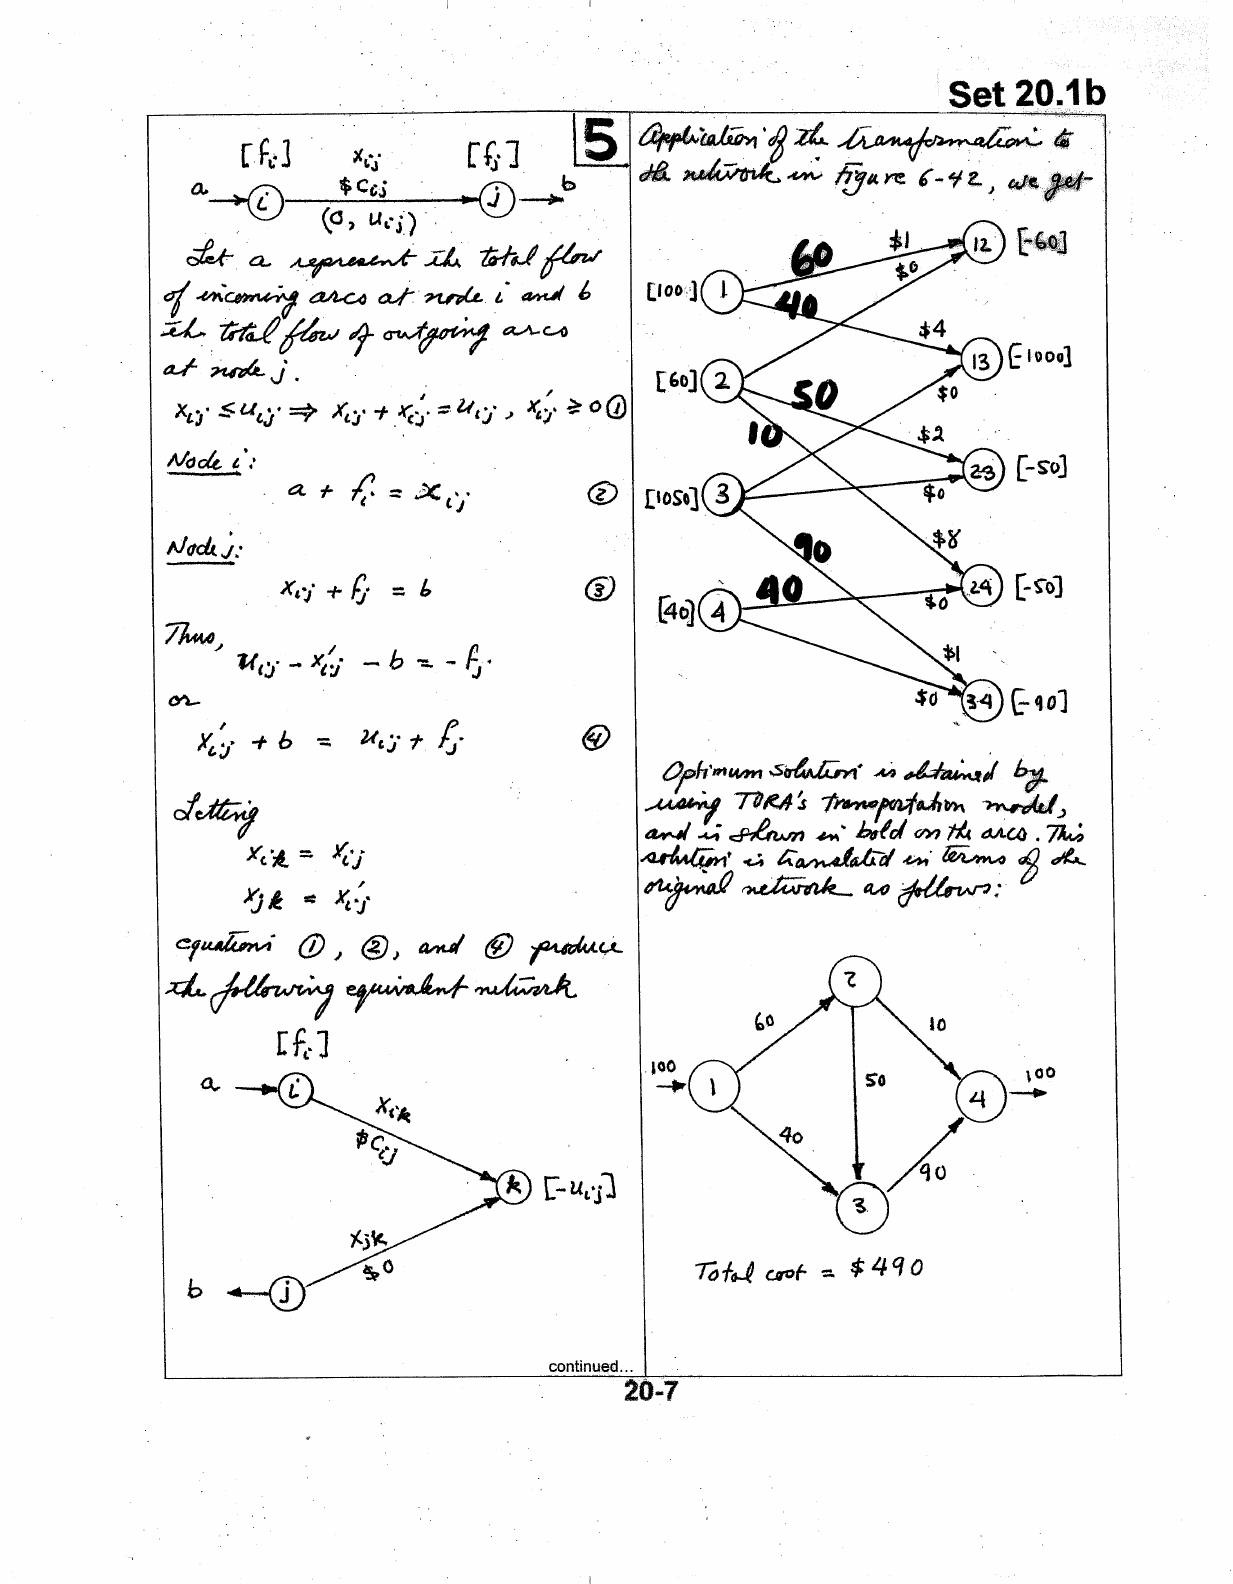 Set 20.1b
5
[fi] xij [fj]
a i $Cij j b
(0, uij)
Let a represent the total flow
of incoming arcs at node i and b
the total flow of outgoing arcs
at node j.
xij ≤ uij ⇒ xij + x'ij = uij , x'ij ≥ 0 ①
Node i:
a + fi = xij ②
Node j:
xij + fj = b ③
Thus,
uij - x'ij - b = - fj
or
x'ij + b = uij + fj ④
Letting
xik = xij
xjk = x'ij
equations ①, ②, and ④ produce
the following equivalent network
[fi]
a i
xik
$Cij
k [-uij]
xjk
$0
b j
continued...
Application of the transformation to
the network in Figure 6-42, we get
60 $1 12 [-60]
$0
[100] 1
40
$4
13 [-1000]
[60] 2
50 $0
10 $2
23 [-50]
[1050] 3 $0
90 $8
40 24 [-50]
[40] 4 $0
$1
$0 34 [-90]
Optimum solution is obtained by
using TORA's transportation model,
and is shown in bold on the arcs. This
solution is translated in terms of the
original network as follows:
2
60 10
100 1 50 4 100
40 90
3
Total cost = $490
20-7